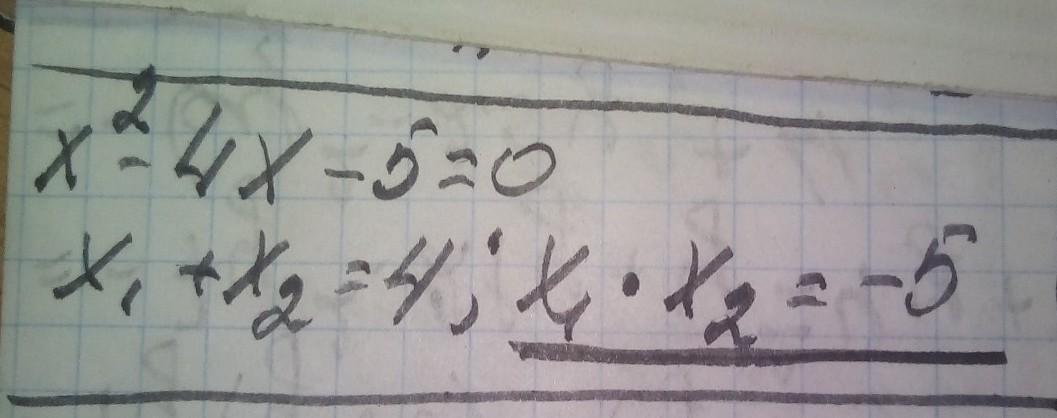 x² - 4x - 5 = 0
x₁ + x₂ = 4; x₁ · x₂ = -5